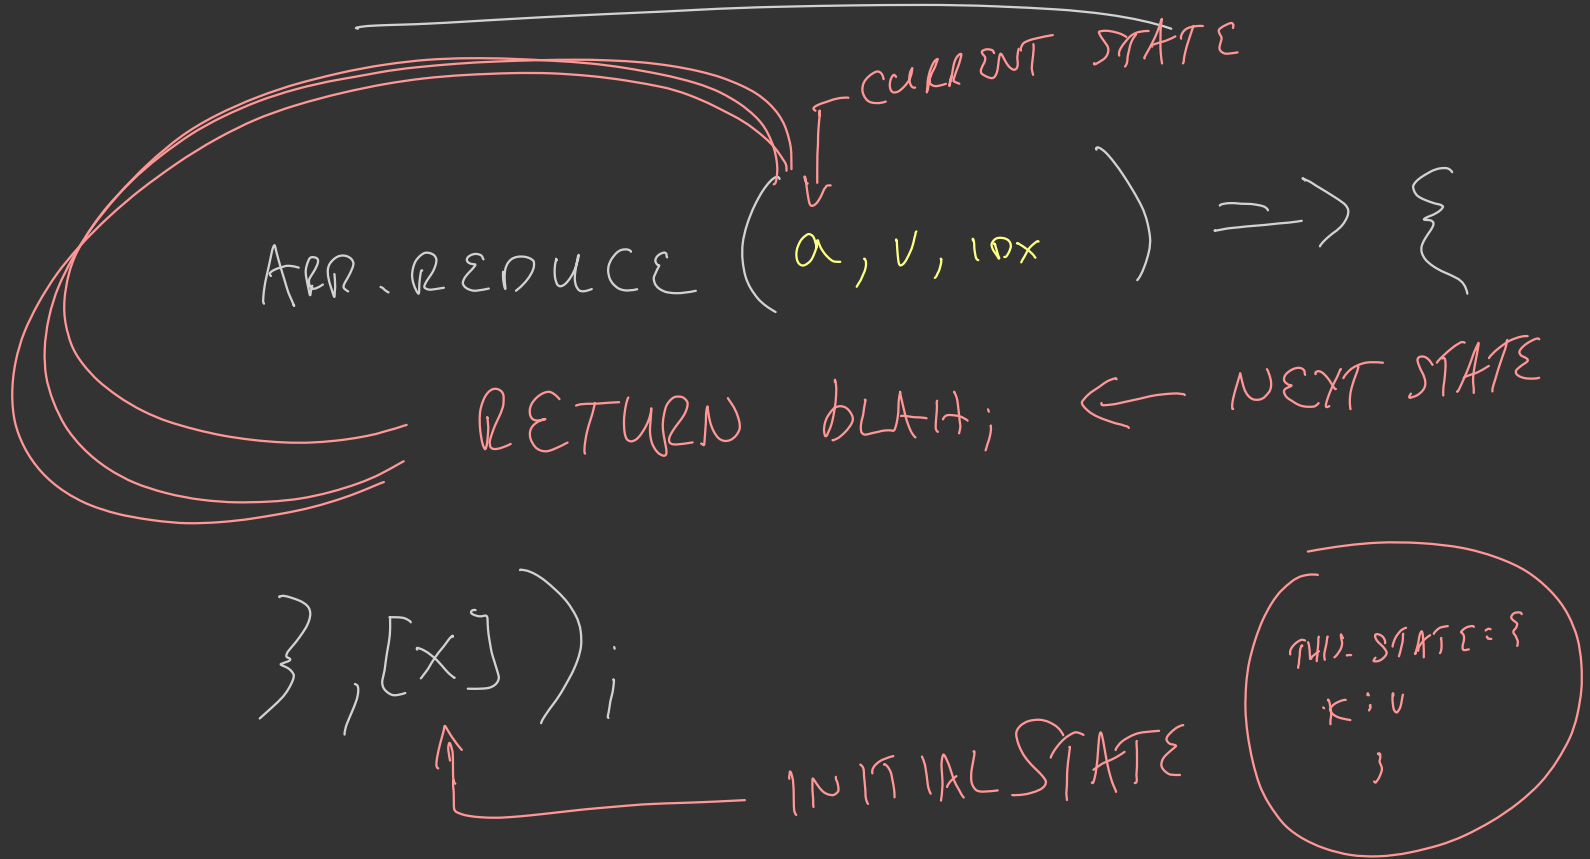 CURRENT STATE
ARR.REDUCE (a, v, IDX) => {
RETURN bLAH; ← NEXT STATE
}, [X]);
INITIAL STATE
THIS.STATE = {
K: V
}